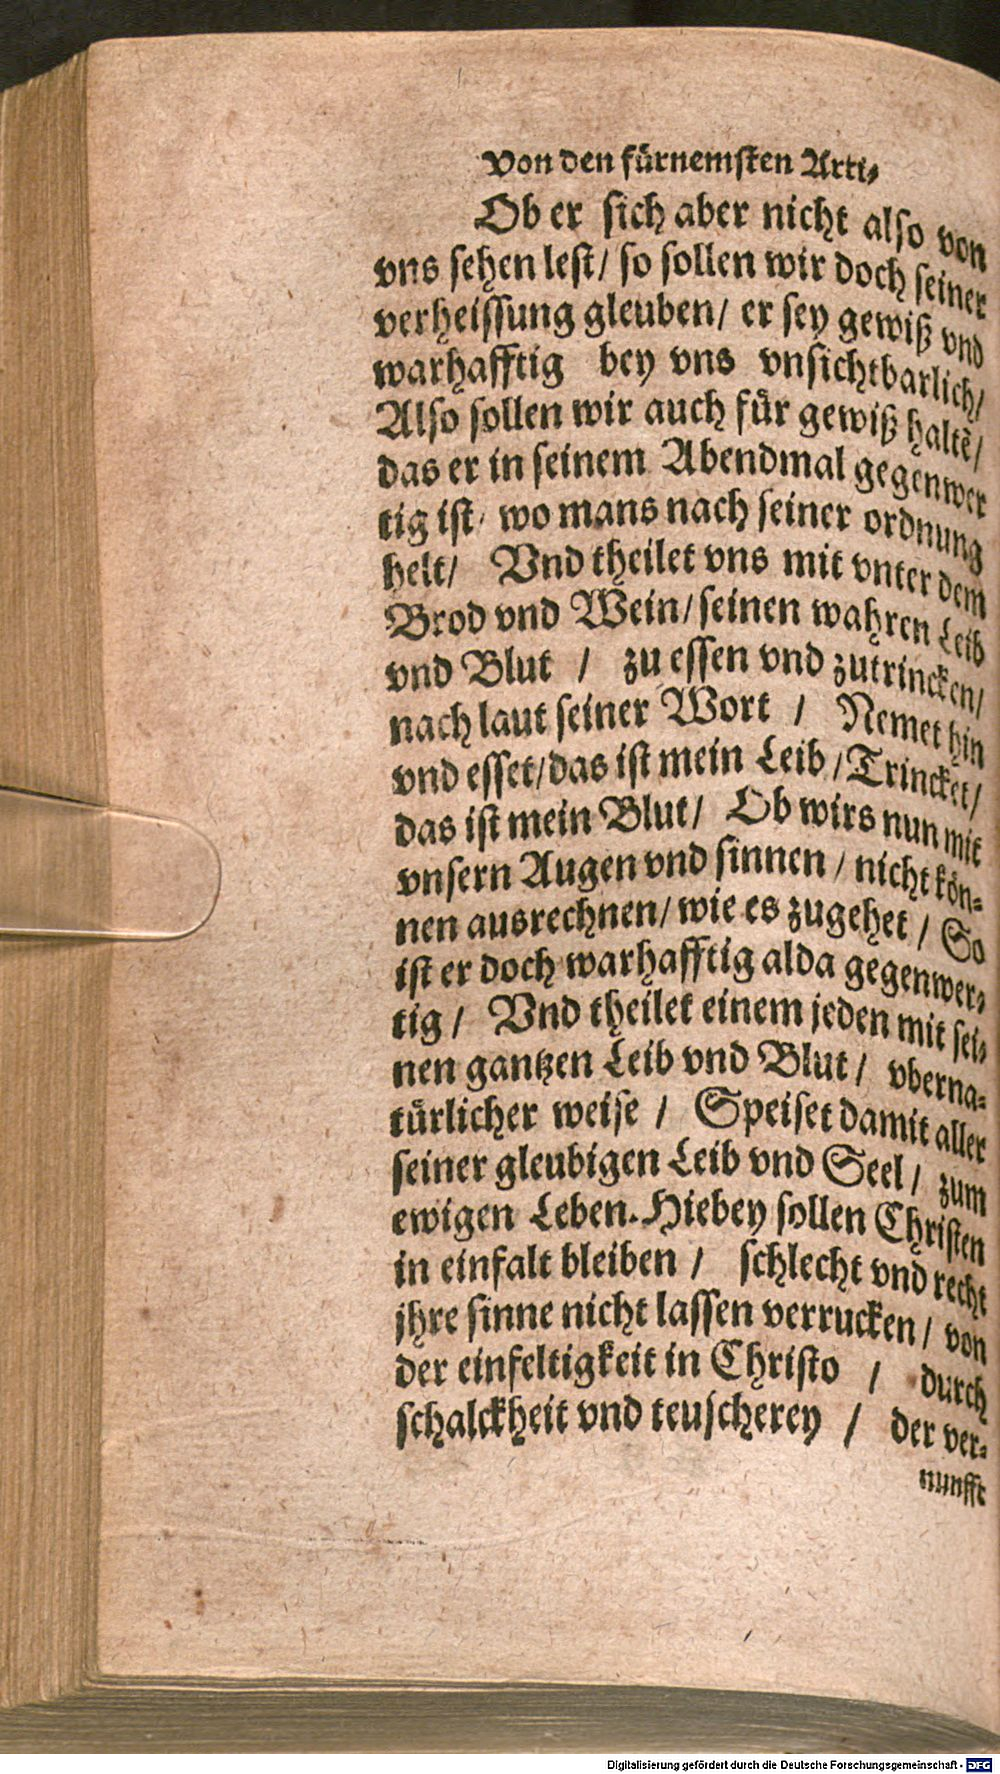 Von den fürnemsten Arti⸗
Ob er sich aber nicht also von
vns sehen lest/ so sollen wir doch seiner
verheissung gleuben/ er sey gewiß vnd
warhafftig bey vns vnsichtbarlich/
Also sollen wir auch für gewiß haltē/
das er in seinem Abendmal gegenwer
tig ist/ wo mans nach seiner ordnung
helt/ Vnd theilet vns mit vnter dem
Brod vnd Wein/ seinen wahren Leib
vnd Blut / zu essen vnd zutrincken/
nach laut seiner Wort / Nemet hin
vnd esset/das ist mein Leib /Trincket/
das ist mein Blut/ Ob wirs nun mit
vnsern Augen vnd sinnen / nicht kön⸗
nen ausrechnen/ wie es zugehet / So
ist er doch warhafftig alda gegenwer⸗
tig / Vnd theilet einem jeden mit sei⸗
nen gantzen Leib vnd Blut / vberna⸗
türlicher weise / Speiset damit aller
seiner gleubigen Leib vnd Seel / zum
ewigen Leben. Hiebey sollen Christen
in einfalt bleiben / schlecht vnd recht
jhre sinne nicht lassen verrucken / von
der einfeltigkeit in Christo / durch
schalckheit vnd teuscherey / der ver⸗
nunfft
Digitalisierung gefördert durch die Deutsche Forschungsgemeinschaft - DFG